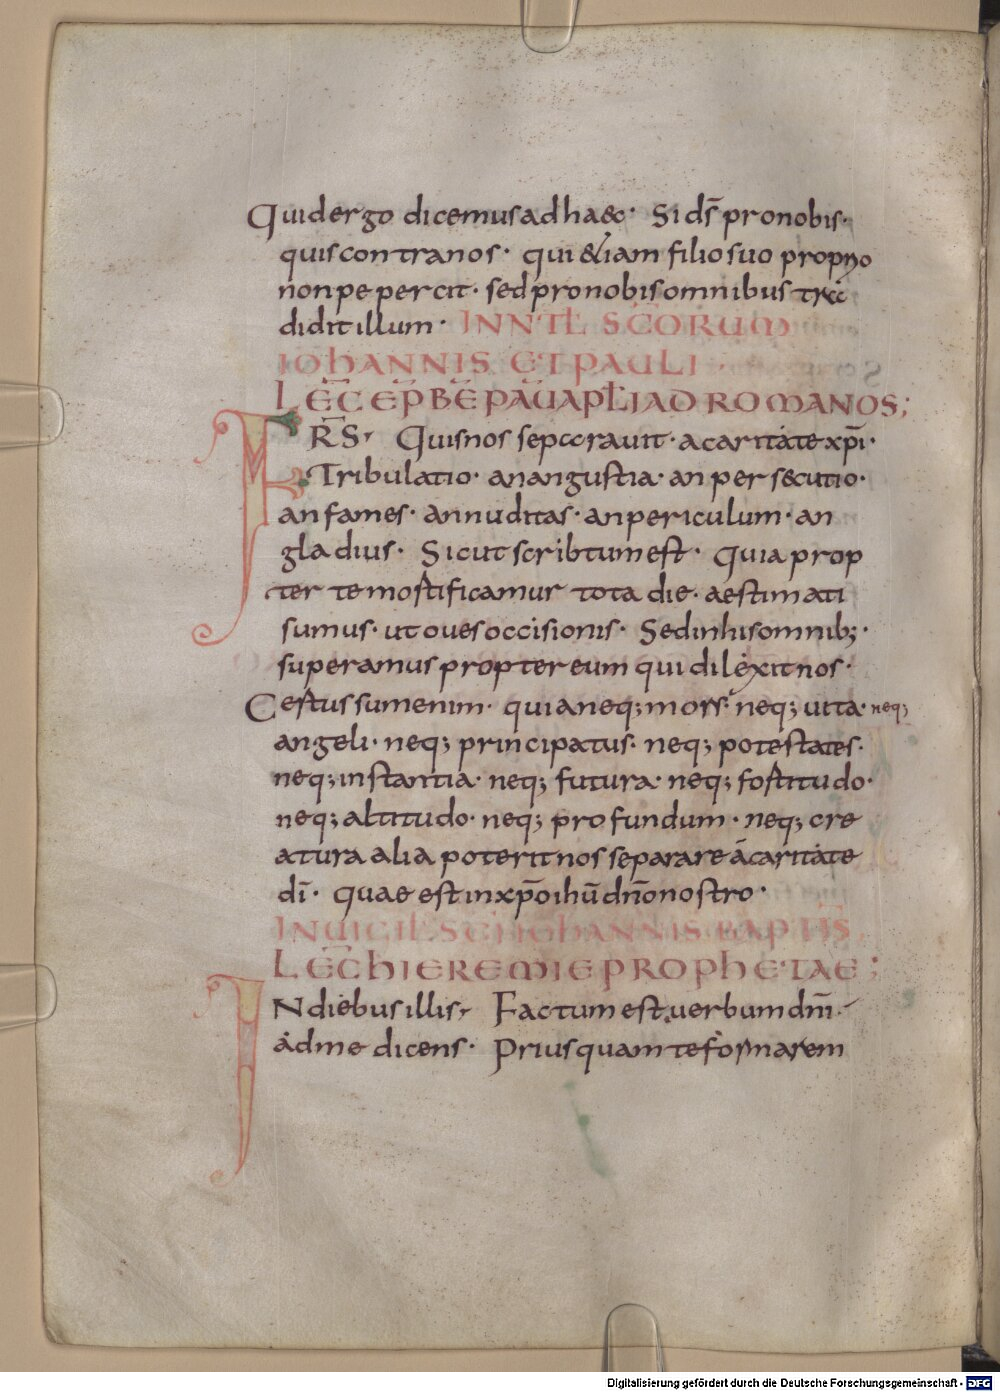 Quid ergo dicemus ad haec· Si ds̄ pro nobis·
quis contra nos· qui &iam filio suo proprio
non pepercit· sed pro nobis omnibus tra
didit illum· IN NTL SC̄ORUM
IOHANNIS ET PAULI
LEC̄ EP BE PAU APLI AD ROMANOS;
FR̄S, Quis nos separavit· a caritate xp̄i·
Tribulatio· an angustia· an persecutio·
an fames· an nuditas· an periculum· an
gladius· Sicut scribtum est· Quia prop
ter te mortificamur tota die· aestimati
sumus· ut oves occisionis· Sed in his omnib;·
superamus propter eum qui dilexit nos·
Certus sum enim· quia neq; mors· neq; vita· neq;
angeli· neq; principatus· neq; potestates·
neq; instantia· neq; futura· neq; fortitudo·
neq; altitudo· neq; profundum· neq; cre
atura alia poterit nos separare a caritate
dī· quae est in xp̄o ihū dn̄o nostro·
IN VIGIL SC̄I IOHANNIS BAPTIS
LEC̄ HIEREMIE PROPHETAE;
IN diebus illis, Factum est verbum dn̄i·
ad me dicens· Priusquam te formarem
Digitalisierung gefördert durch die Deutsche Forschungsgemeinschaft - DFG